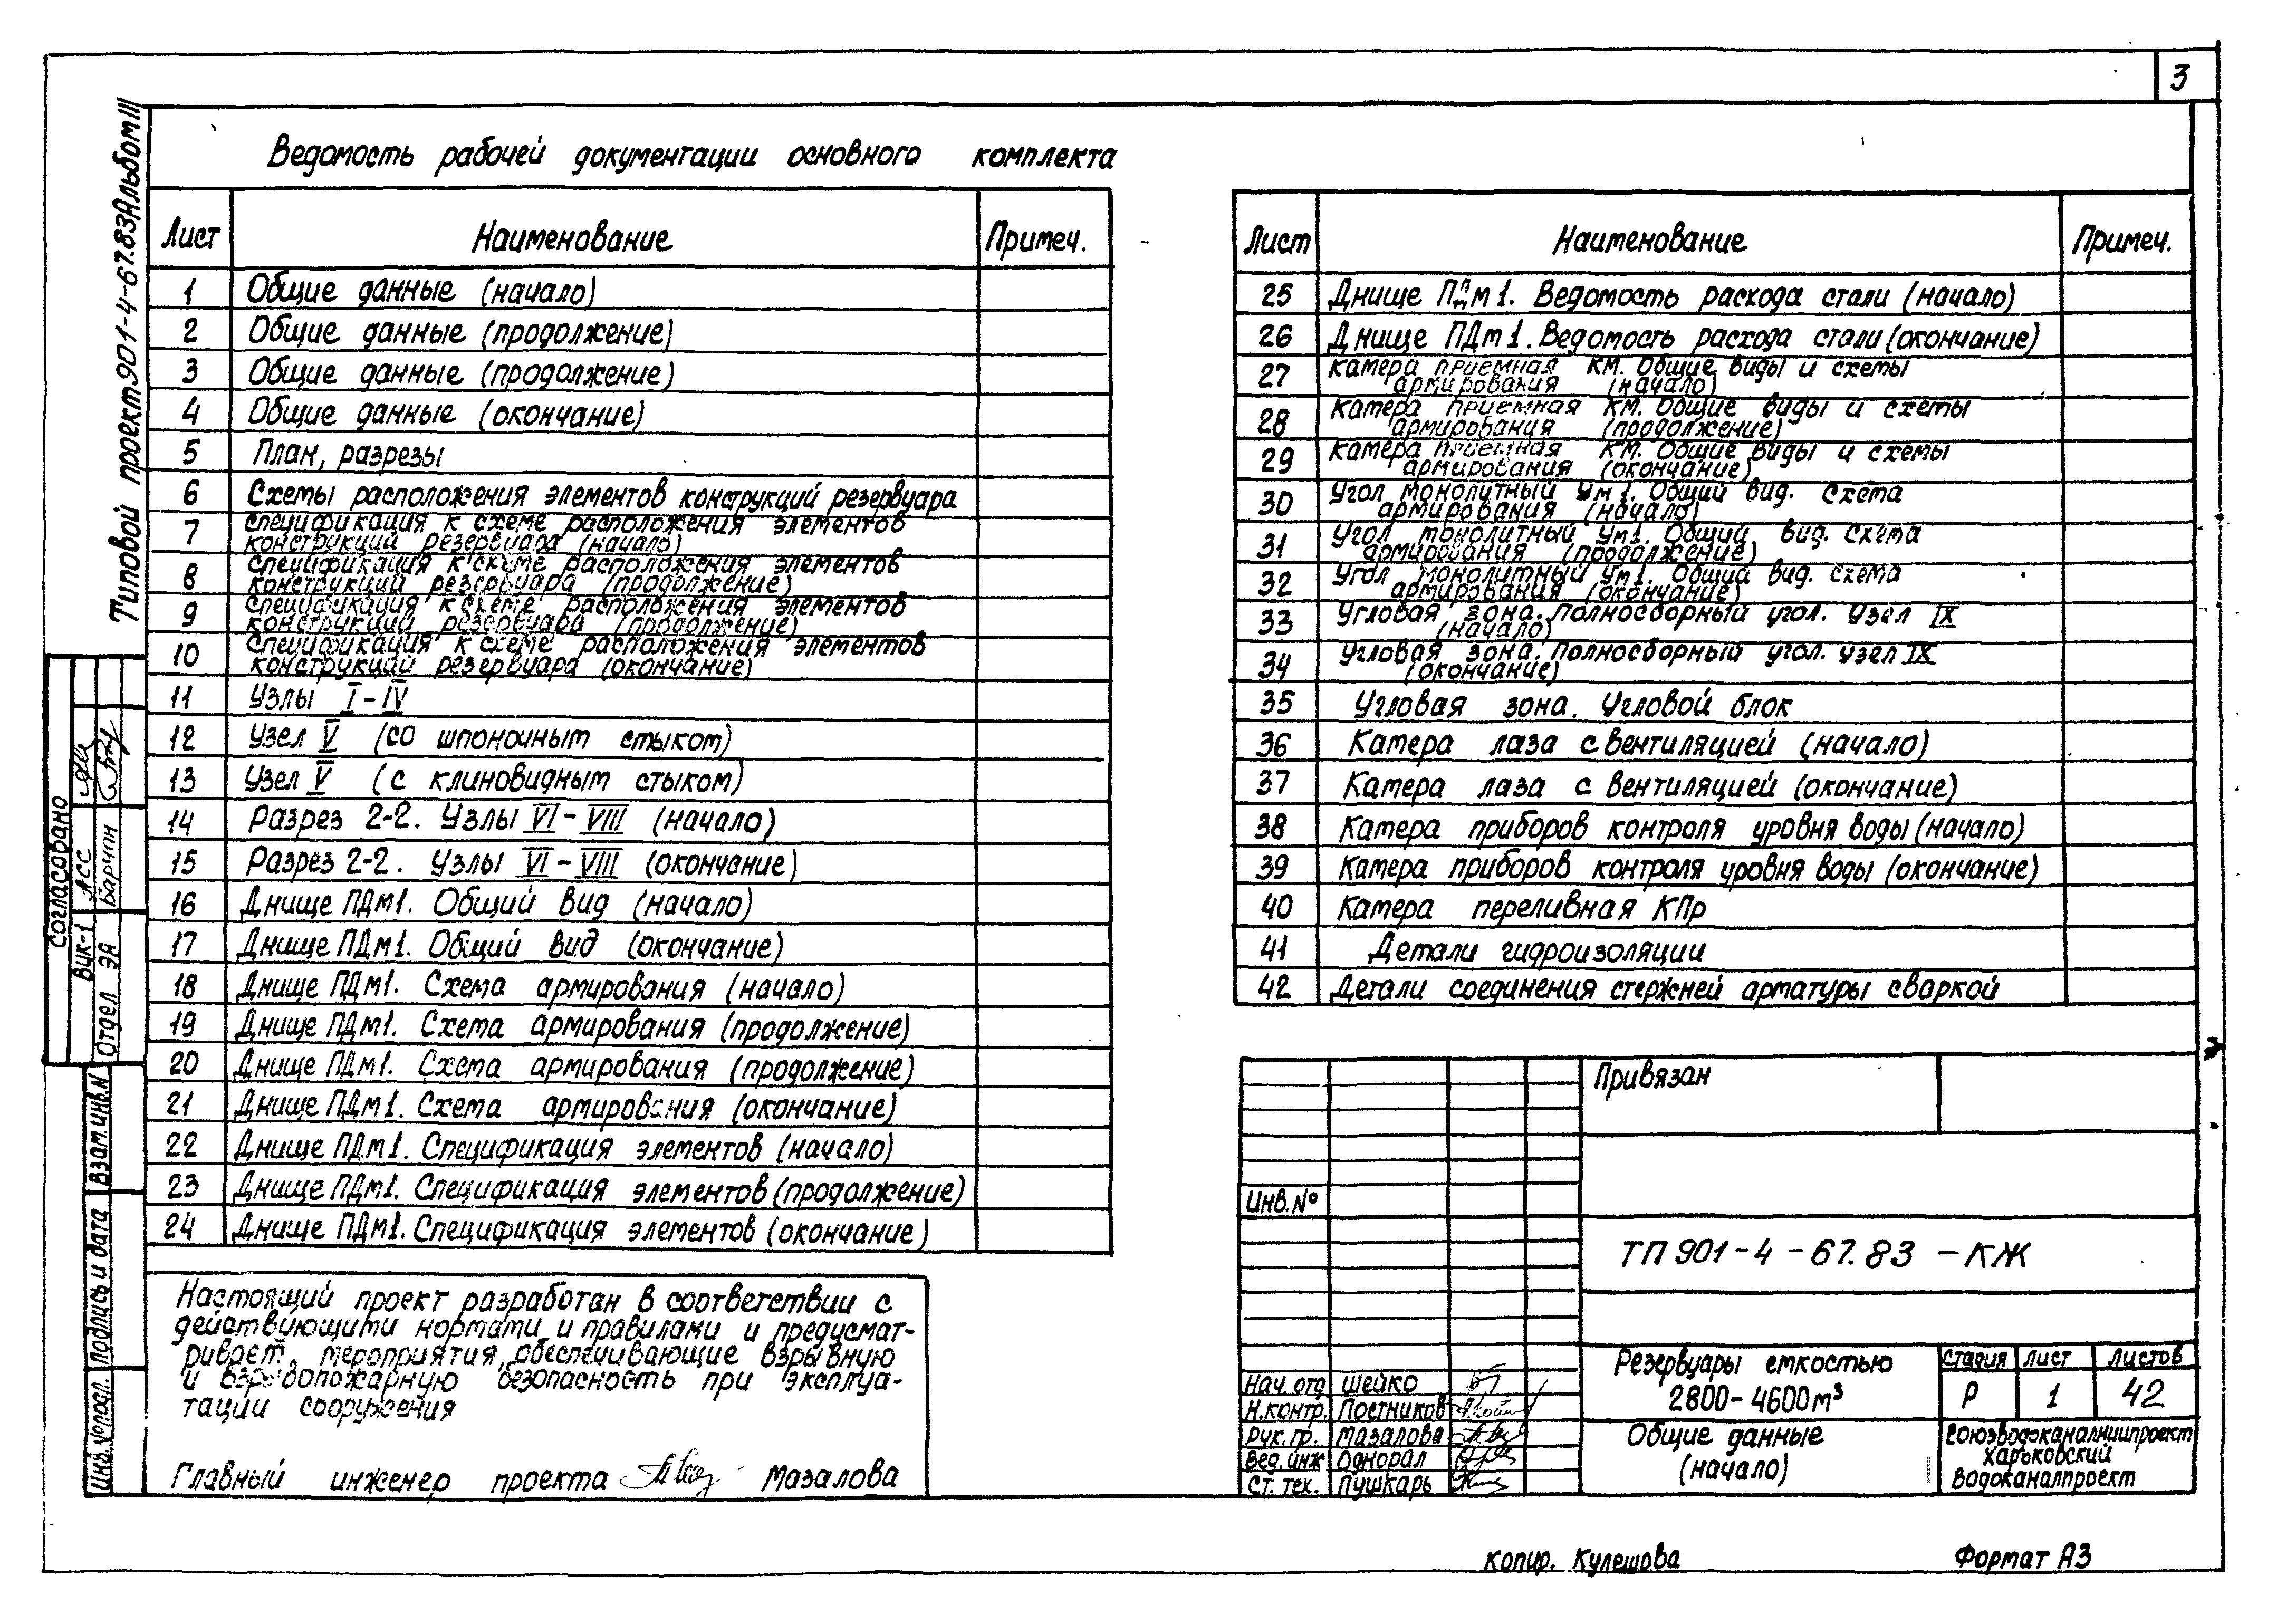 3
Типовой проект 901-4-67.83 Альбом III
Ведомость рабочей документации основного комплекта
Лист Наименование Примеч.
1 Общие данные (начало)
2 Общие данные (продолжение)
3 Общие данные (продолжение)
4 Общие данные (окончание)
5 План, разрезы
6 Схемы расположения элементов конструкций резервуара
7 Спецификация к схеме расположения элементов
конструкций резервуара (начало)
8 Спецификация к схеме расположения элементов
конструкций резервуара (продолжение)
9 Спецификация к схеме расположения элементов
конструкций резервуара (продолжение)
10 Спецификация к схеме расположения элементов
конструкций резервуара (окончание)
11 Узлы I-IV
12 Узел V (со шпоночным стыком)
13 Узел V (с клиновидным стыком)
14 Разрез 2-2. Узлы VI-VIII (начало)
15 Разрез 2-2. Узлы VI-VIII (окончание)
16 Днище ПДм1. Общий вид (начало)
17 Днище ПДм1. Общий вид (окончание)
18 Днище ПДм1. Схема армирования (начало)
19 Днище ПДм1. Схема армирования (продолжение)
20 Днище ПДм1. Схема армирования (продолжение)
21 Днище ПДм1. Схема армирования (окончание)
22 Днище ПДм1. Спецификация элементов (начало)
23 Днище ПДм1. Спецификация элементов (продолжение)
24 Днище ПДм1. Спецификация элементов (окончание)
Лист Наименование Примеч.
25 Днище ПДм1. Ведомость расхода стали (начало)
26 Днище ПДм1. Ведомость расхода стали (окончание)
27 Камера приемная КМ. Общие виды и схемы
армирования (начало)
28 Камера приемная КМ. Общие виды и схемы
армирования (продолжение)
29 Камера приемная КМ. Общие виды и схемы
армирования (окончание)
30 Угол монолитный Ум1. Общий вид. Схема
армирования (начало)
31 Угол монолитный Ум1. Общий вид. Схема
армирования (продолжение)
32 Угол монолитный Ум1. Общий вид. Схема
армирования (окончание)
33 Угловая зона. Полносборный угол. Узел IX
(начало)
34 Угловая зона. Полносборный угол. Узел IX
(окончание)
35 Угловая зона. Угловой блок
36 Камера лаза с вентиляцией (начало)
37 Камера лаза с вентиляцией (окончание)
38 Камера приборов контроля уровня воды (начало)
39 Камера приборов контроля уровня воды (окончание)
40 Камера переливная КПр
41 Детали гидроизоляции
42 Детали соединения стержней арматуры сваркой
Согласовано
ВУК-1 АСС
Отдел ЭА Барчан
Взам.инв.N
Подпись и дата
Инв.№подл.
Настоящий проект разработан в соответствии с
действующими нормами и правилами и предусмат-
ривает мероприятия, обеспечивающие взрывную
и взрывопожарную безопасность при эксплуа-
тации сооружения
Главный инженер проекта Мазалова
Привязан
Инв.№
ТП 901-4-67.83 -КЖ
Нач. отд Шейко
Н.контр. Постников
Рук. гр. Мазалова
Вед.инж Однорал
Ст. тех. Пушкарь
Резервуары емкостью
2800-4600м³
Стадия Лист Листов
Р 1 42
Общие данные
(начало)
Союзводоканалниипроект
Харьковский
Водоканалпроект
Копир. Кулешова
Формат А3